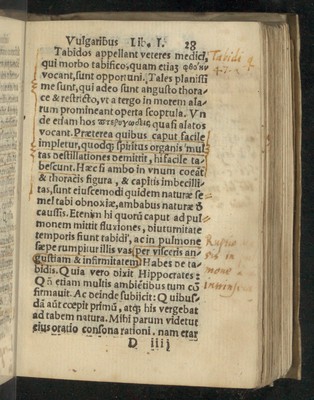 Vulgaribus Lib. I. 28
Tabidos appellant veteres medici,
qui morbo tabifico, quam etiaʒ φθόην
vocant, sunt opportuni. Tales planissi
me sunt, qui adeo sunt angusto thora-
ce & restricto, vt a tergo in morem ala-
rum promineant operta scoptula. Vn
de etiam hos πτερυγωδεις quasi alatos
vocant. Præterea quibus caput facile
impletur, quodqʒ spiritus organis mul
tas destillationes demittit, hi facile ta-
bescunt. Hæc si ambo in vnum coeāt
& thoracis figura, & capitis imbecilli-
tas, sunt eiuscemodi quidem naturæ se
mel tabi obnoxiæ, ambabus naturæ d
caussis. Etenim hi quorū caput ad pul
monem mittit fluxiones, diuturnitate
temporis fiunt tabidi, ac in pulmone
sæpe rumpitur illis vas per visceris an-
gustiam & infirmitatem Habes de ta-
bidis. Quia vero dixit Hippocrates:
Qn̄ etiam multis ambiētibus tum cō
firmauit. Ac deinde subijcit: Quibus-
dā aūt cœpit primū, atqʒ his vergebat
ad tabem natura. Mihi parum videtur
eius oratio consona rationi, nam etar
D iiij
Tabidi q